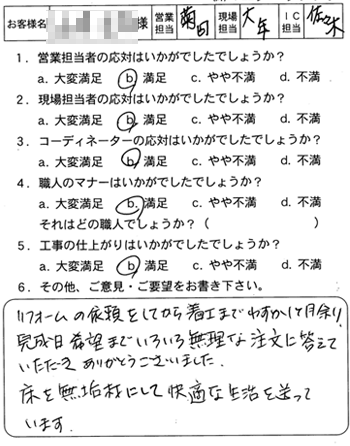 お客様名 様 営業担当 菊田 現場担当 大年 IC担当 佐々木
1. 営業担当者の応対はいかがでしたでしょうか?
a. 大変満足 b. 満足 c. やや不満 d. 不満
2. 現場担当者の応対はいかがでしたでしょうか?
a. 大変満足 b. 満足 c. やや不満 d. 不満
3. コーディネーターの応対はいかがでしたでしょうか?
a. 大変満足 b. 満足 c. やや不満 d. 不満
4. 職人のマナーはいかがでしたでしょうか?
a. 大変満足 b. 満足 c. やや不満 d. 不満
それはどの職人でしょうか?( )
5. 工事の仕上がりはいかがでしたでしょうか?
a. 大変満足 b. 満足 c. やや不満 d. 不満
6. その他、ご意見・ご要望をお書き下さい。
リフォームの依頼をしてから着工までわずか1ヶ月余り、
完成日希望までいろいろ無理な注文に答えて
いただき ありがとうございました.
床を無垢材にして快適な生活を送って
います.